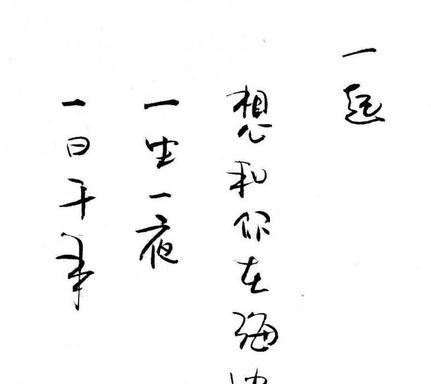 一起
想和你在海边
一生一夜
一日千年